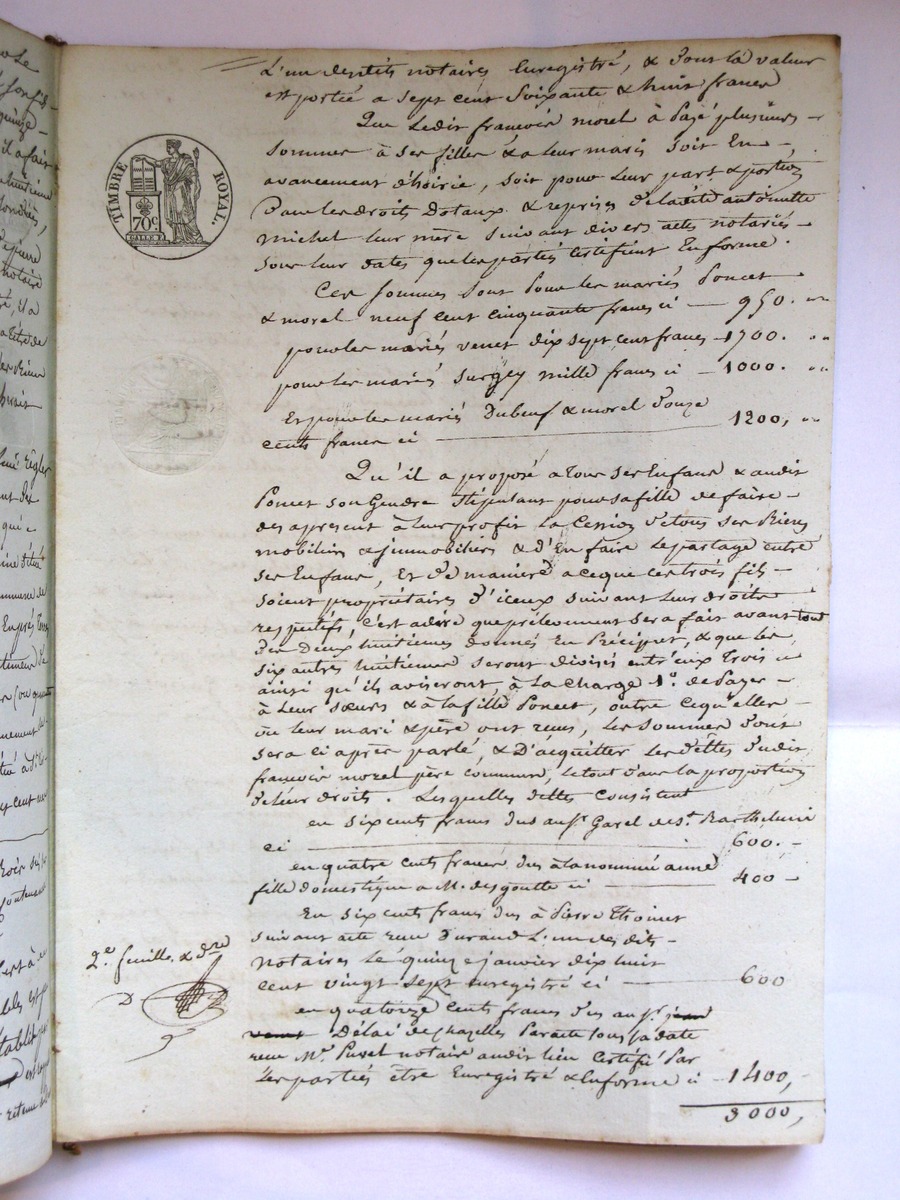 L'un desdits notaires Enregistré, & dont la valeur
est portée a sept cent soixante & huit francs
Que Ledit francois morel à Payé plusieurs
sommes à ses filles & a leur maris soit En
avancement d'hoirie, soit pour Leur part & portion
Dans les droits Dotaux & reprises de ladite antoinette
michel leur mere suivant divers actes notariés
sous leur dates que les parties Certifient En forme.
Ces sommes sont Pour les mariés Poncet
& morel neuf cent cinquante francs ci 950.
pour les mariés venet dix sept cent francs 1700.
pour les mariés surgey mille francs ci 1000.
Et pour les mariés Dubeuf & morel Douze
cents francs ci 1200,
Qu'il a proposé a tous ses Enfans & audit
Poncet son Gendre stipulant pour sa fille de faire
des apresent à Leur profit La Cession de tous ses Biens
mobiliers & jmmobiliers & d'En faire Le partage entre
ses Enfans, Et de maniere a ce que ces trois fils
soient propriétaires d'iceux suivant Leur droits
respectifs, C'est adire que prélevement sera fait avant tout
des Deux huitiemes donnés En Préciput, & que les
six autres huitiemes seront divisés entr'eux Trois
ainsi qu'ils aviseront, à La charge 1°. de Payer
à Leur sœurs & à la fille Poncet, outre ce qu'elles
ou leur mari & père ont reçu, Les sommes dont
sera ci après parlé, & D'acquitter Les dettes dudit
francois morel père commun, Le tout dans la proportion
de leur droits. Lesquelles dettes Consistent
en six cents francs dus au Sr. Garel de St. Barthelemi
ci 600.
en quatre cents francs dus à la nommée anne
fille domestique a M. desgoutte ci 400
En six cents francs dus à Pierre Thoinet
suivant acte reçu Durand L'un des dits
notaires Le quinze janvier dix huit
cent vingt sept Enregistré ci 600
en quatorze cents francs dus au Sr. jean
venet Délai de chazelles Par acte sous sa date
reçu Me. notaire audit lieu Certifié Par
Les parties être Enregistré & En forme ci 1400,
3000,
TIMBRE ROYAL.
70 c.
2e feuille &